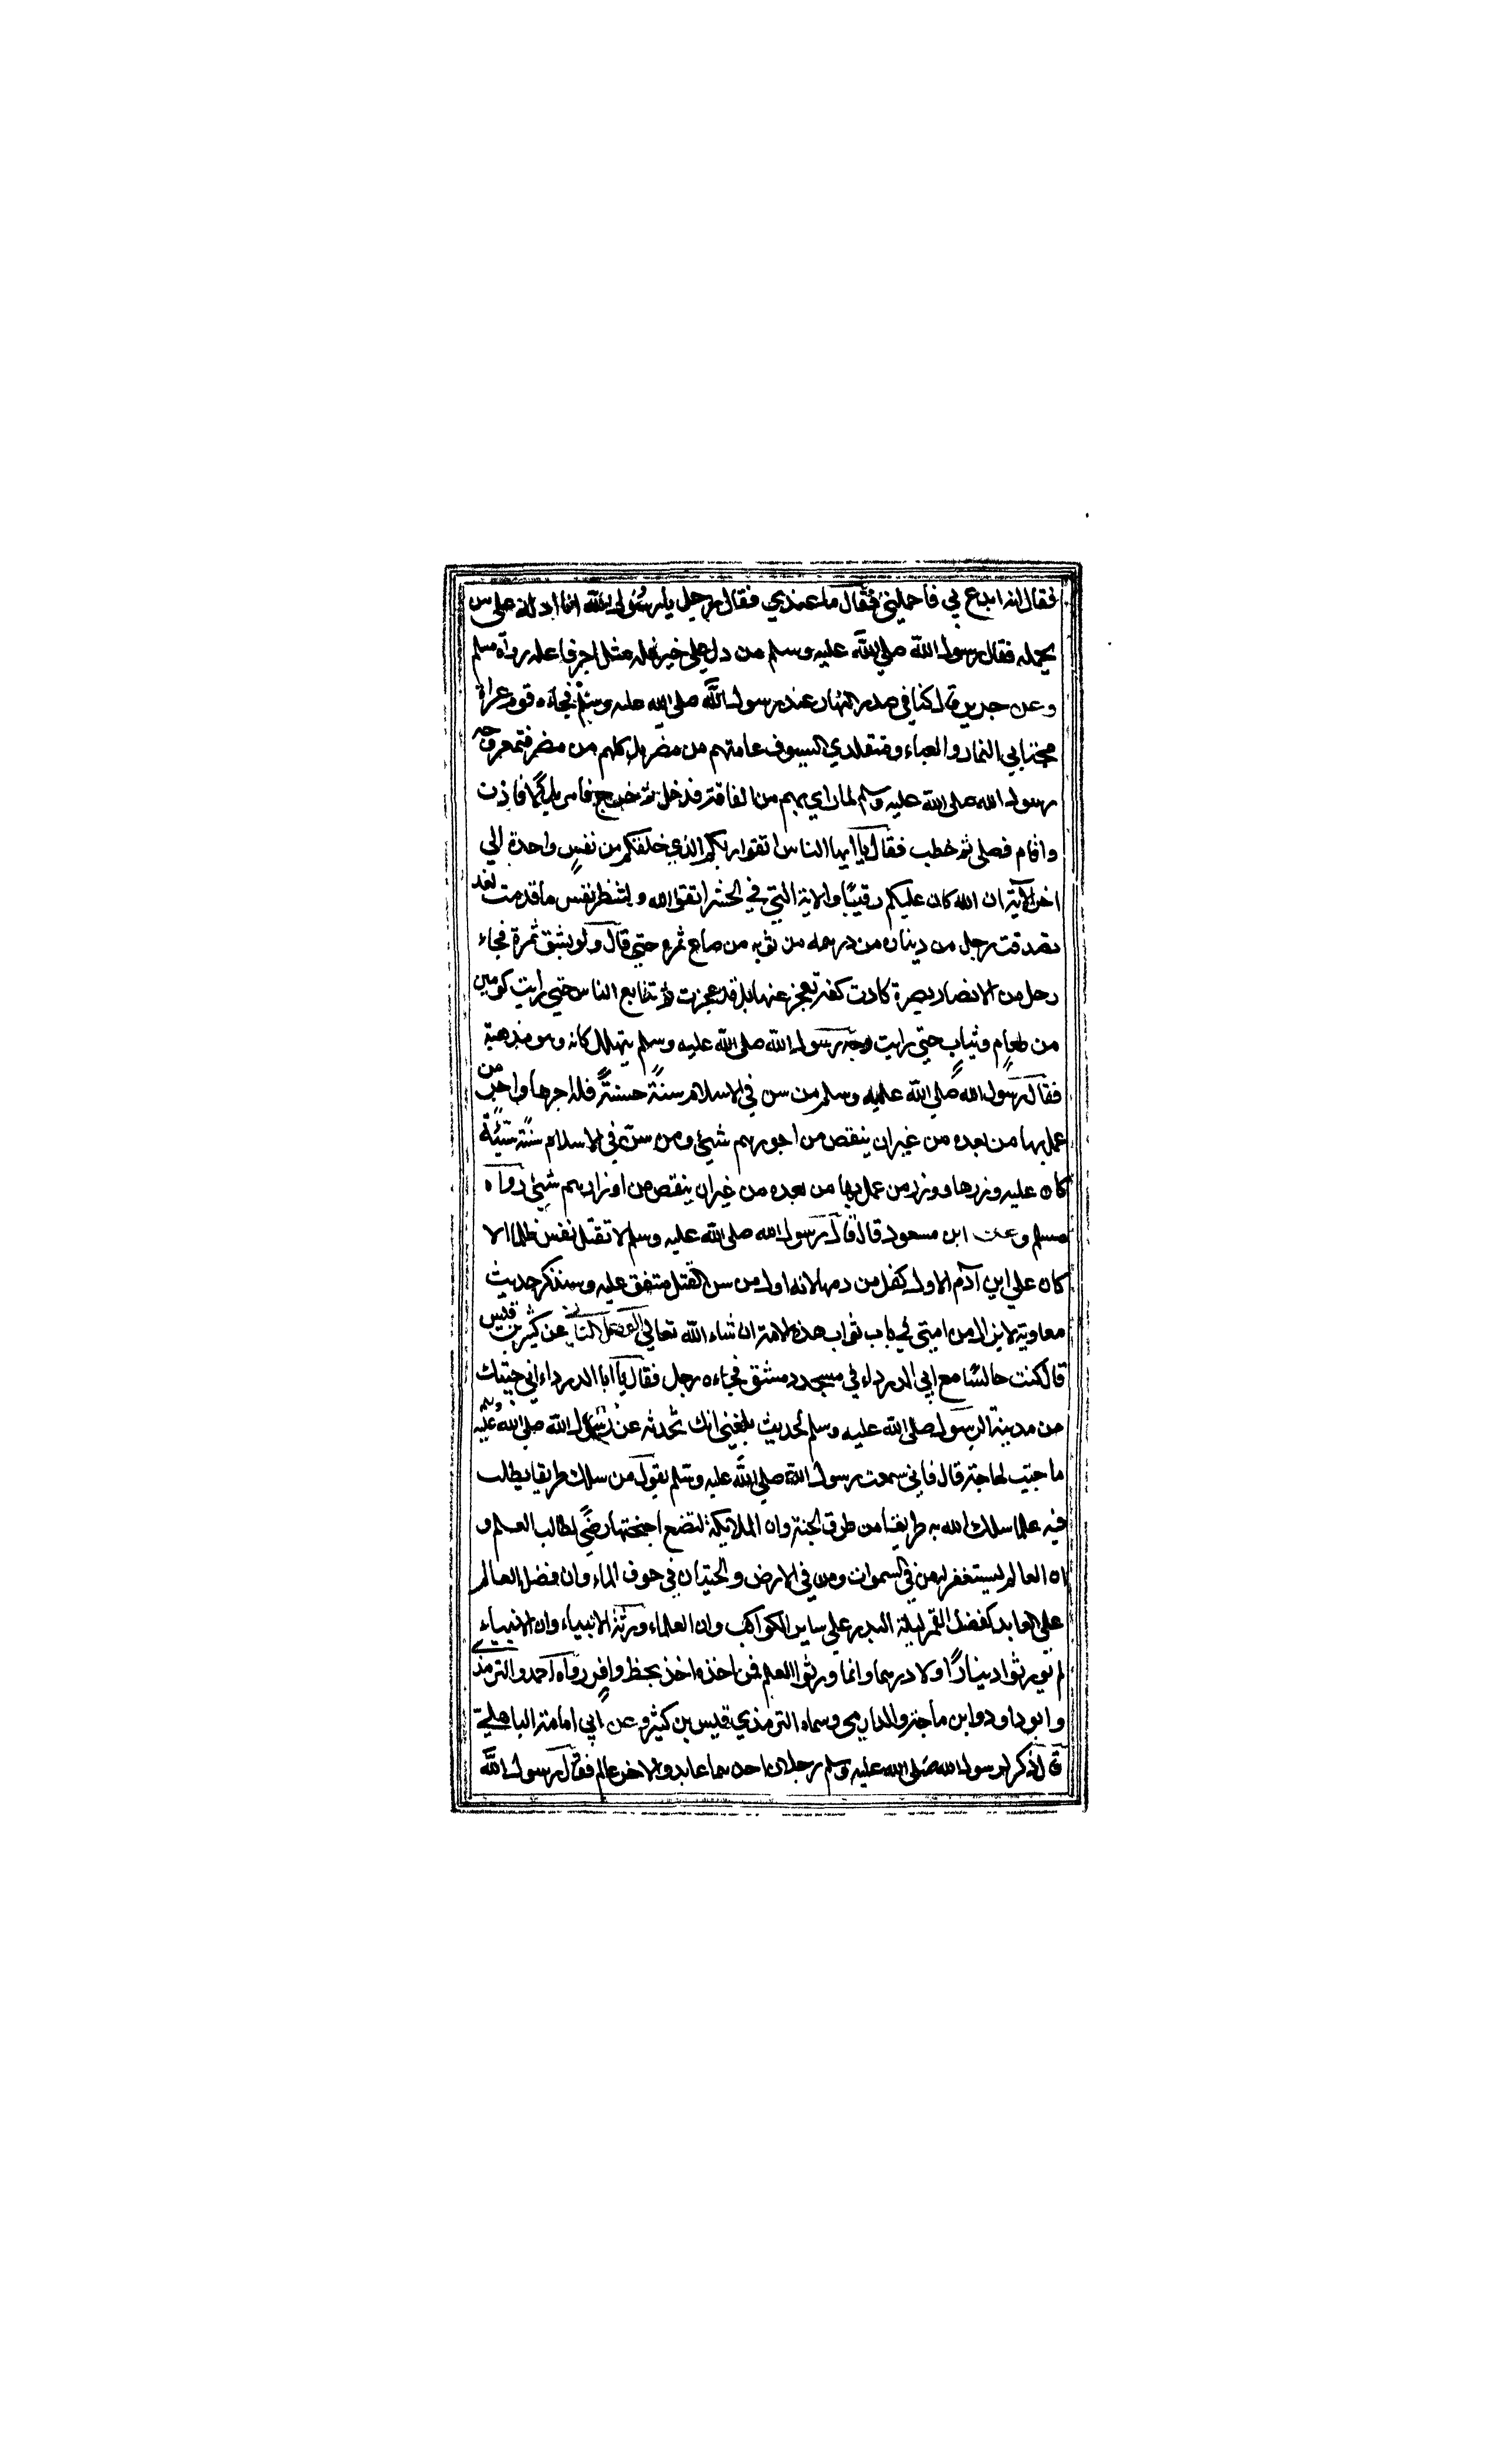 فقال انه ابدع بي فاحملني فقال ما عندي فقال رجل يا رسول الله انا ادله على من
يحمله فقال رسول الله صلى الله عليه وسلم من دل على خير فله مثل اجر فاعله رواه مسلم
وعن جرير قال كنا في صدر النهار عند رسول الله صلى الله عليه وسلم فجاءه قوم عراة
مجتابي النمار والعباء ومتقلدي السيوف عامتهم من مضر بل كلهم من مضر فتمعر وجه
رسول الله صلى الله عليه وسلم لما راي بهم من الفاقة فدخل ثم خرج فامر بلالا فاذن
واقام فصلى ثم خطب فقال يا ايها الناس اتقوا ربكم الذي خلقكم من نفس واحدة الي
اخر الآية ان الله كان عليكم رقيبًا والاية التي في الحشر اتقوا الله ولتنظر نفس ما قدمت لغد
تصدقت رجل من ديناره من درهمه من ثوبه من صاع تمره حتي قال ولو بشق تمرة فجاء
رجل من الانصار بصرة كادت كفه تعجز عنها بل قد عجزت ثم تتابع الناس حتي رايت كومين
من طعام وثياب حتي رايت وجه رسول الله صلى الله عليه وسلم يتهلل كانه وهو مذهبة
فقال رسول الله صلي الله عليه وسلم من سن في الاسلام سنة حسنةً فله اجرها واجر من
عمل بها من بعده من غير ان ينقص من اجورهم شيئ ومن سن في الاسلام سنة سيئة
كان عليه وزرها ووزر من عمل بها من بعده من غير ان ينقص من اوزارهم شيئ رواه
مسلم وعن ابن مسعود قال قال رسول الله صلى الله عليه وسلم لا تقتل نفس ظلما الا
كان علي ابن آدم الاول كفل من دمها لانه اول من سن القتل متفق عليه وسنذكر حديث
معاوية لا يزال من امتي في باب ثواب هذه الامة ان شاء الله تعالي الفصل الثاني عن كثير بن قيس
قال كنت جالسًا مع ابي الدرداء في مسجد دمشق فجاءه رجل فقال يا ابا الدرداء اني جيتك
من مدينة الرسول صلى الله عليه وسلم لحديث بلغني انك تحدثه عن رسول الله صلي الله عليه وسلم
ما جيت لحاجة قال فاني سمعت رسول الله صلي الله عليه وسلم يقول من سلك طريقا يطلب
فيه علما سلك الله به طريقا من طرق الجنة وان الملايكة لتضع اجنحتها رضًي لطالب العلم و
ان العالم ليستغفر له من في السموات ومن في الارض والحيتان في جوف الماء وان فضل العالم
علي العابد كفضل القمر ليلة البدر علي ساير الكواكب وان العلماء ورثة الانبياء وان الانبياء
لم يورثوا دينارًا ولا درهما وانما ورثوا العلم فمن اخذه اخذ بحظ وافر رواه احمد والترمذي
وابو داود وابن ماجة والدارمي وسماه الترمذي قيس بن كثير وعن ابي امامة الباهلي
قال ذكر لرسول الله صلى الله عليه وسلم رجلان احدهما عابد والاخر عالم فقال رسول الله